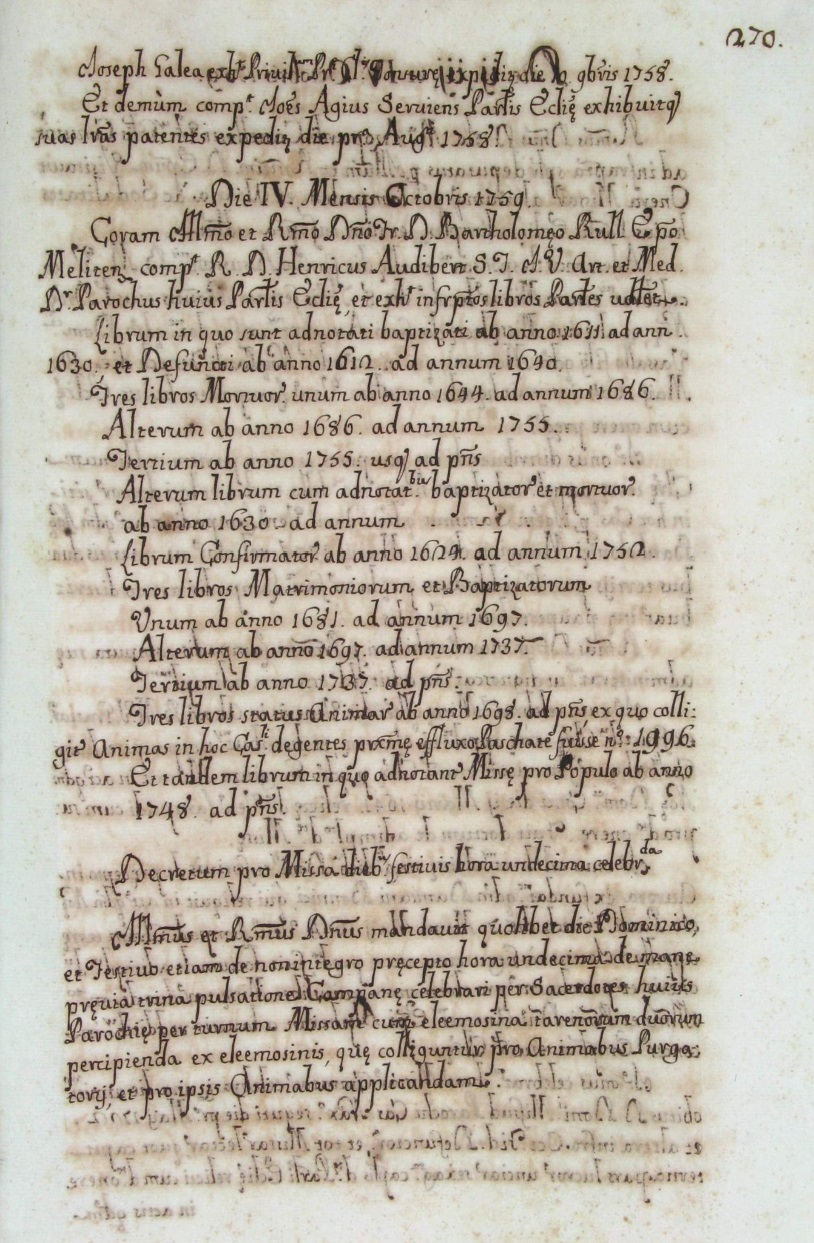 270.
Joseph Galea exbt Privil Pr expedit die 9bris 1758.
Et demùm compt Joẽs Agius Seruiens Partis Eclię exhibuitq
suas lrãs patentes expedit die pro Augti 1758
Die IV. Mensis Octobris 1759.
Coram Illmõ et Rmõ Dnõ Fr. D. Bartholomęo Rull Epõ
Meliten compt R. D. Henricus Audibert S. T. J. V. Art. et Med.
Dr Parochus huius Partis Eclię, et exbt infrptos libros Partes
Librum in quo sunt adnotati baptizati ab anno 1611 ad ann.
1630. et Defuncti ab anno 1612. ad annum 1640.
Tres libros Mortuor. unum ab anno 1644. ad annum 1686.
Alterum ab anno 1686. ad annum 1755.
Tertium ab anno 1755. usq ad pñs
Alterum librum cum adnotat.bus baptizator et mortuor.
ab anno 1630. ad annum
Librum Confirmator ab anno 1624. ad annum 1752.
Tres libros Matrimoniorum et Baptizatorum
Unum ab anno 1681. ad annum 1697.
Alterum ab anno 1697. ad annum 1737.
Tertium ab anno 1737. ad pñs.
Tres libros status Animar ab anno 1698. ad pñs, ex quo colli:
git Animas in hoc Casli degentes pxmę effluxo Paschate fuisse no 1096.
Et tandem librum in quo adnotantr Missę pro Populo ab anno
1748. ad pñs.
Decretum pro Missa dieb festiuis hora undecima celebrda
Illmus et Rmus Dnus mandauit quolibet die Dominico,
et Festiuo etiam de non integro pręcepto hora undecima de mane
pręuia trina pulsatione Campanę celebrari per Sacerdotes huius
Parochię per turnum Missam cum eleemosina tarenorum duorum
percipienda ex eleemosinis, quę colliguntur pro Animabus Purga:
torij, et pro ipsis Animabus applicandam.